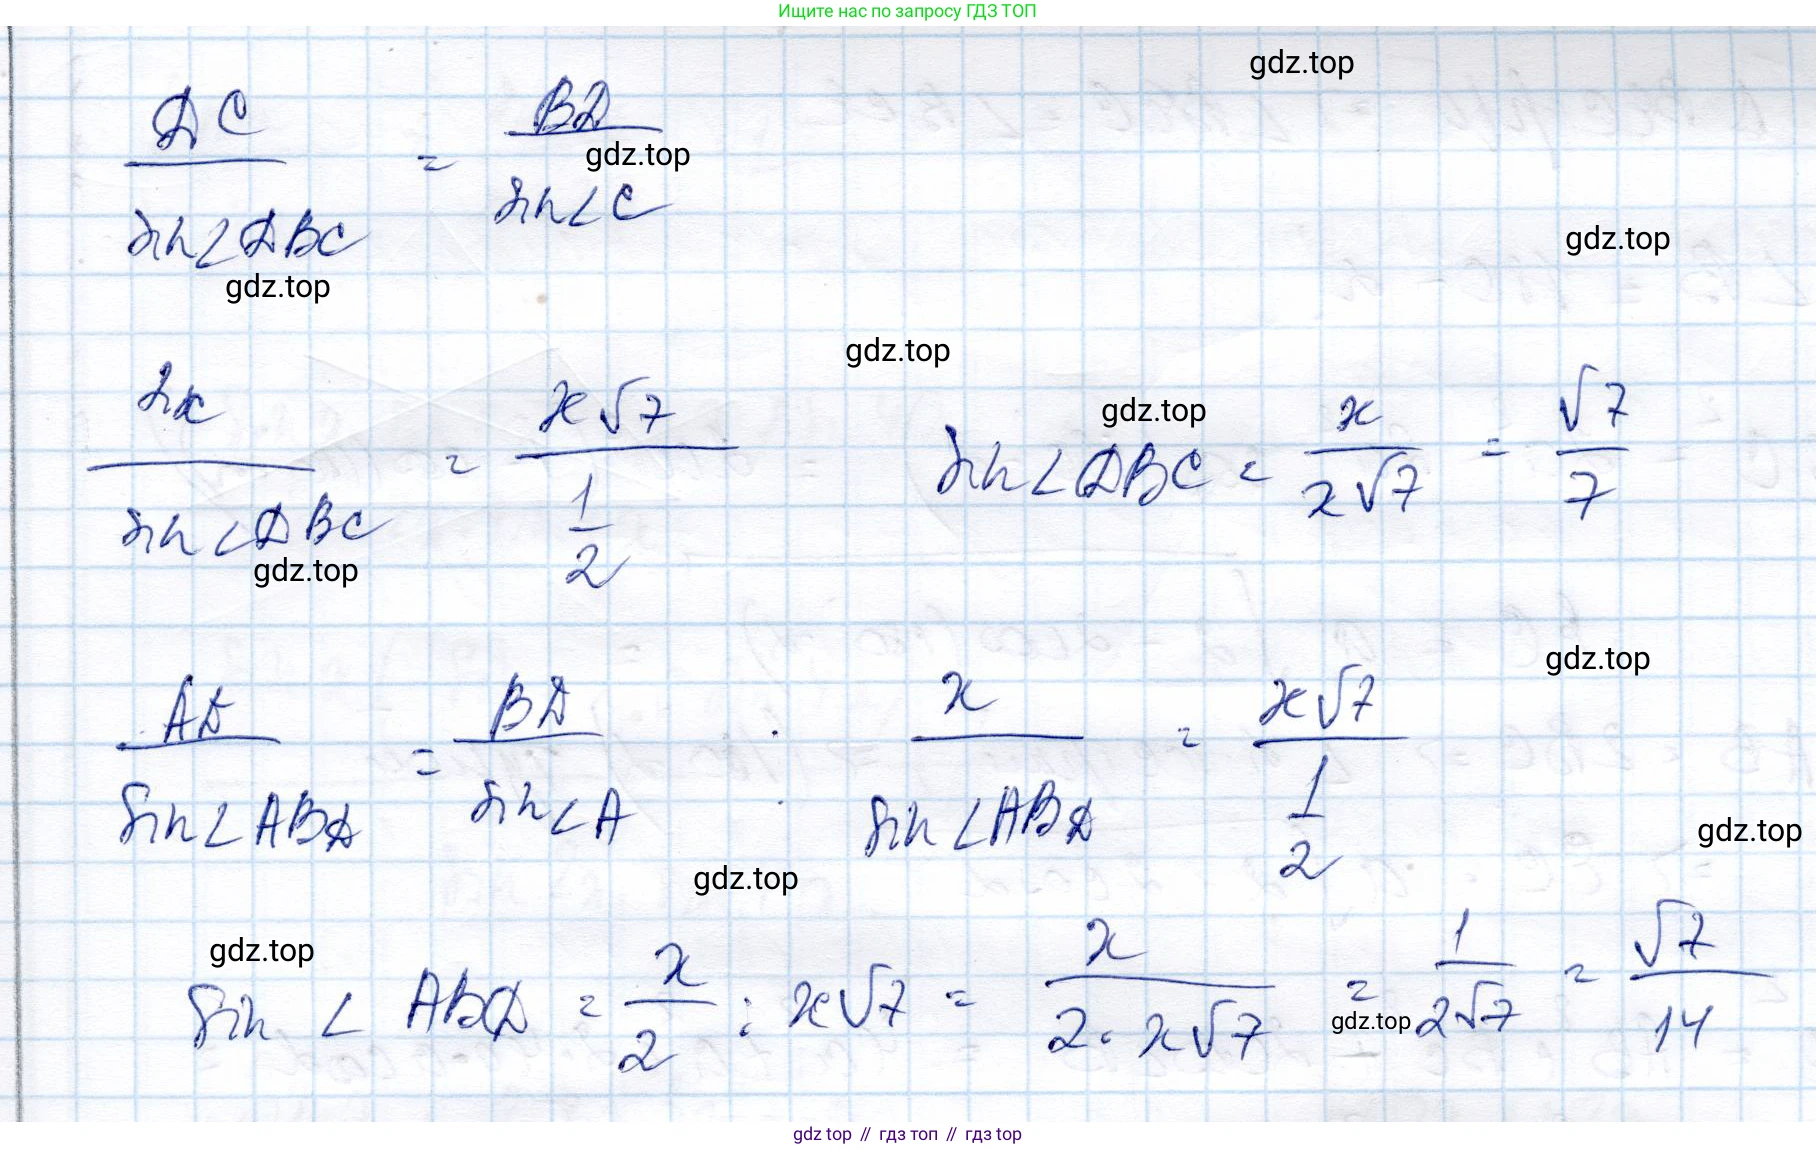 Ищите нас по запросу ГДЗ ТОП
gdz.top
DC / sin∠DBC = BD / sin∠C
gdz.top
gdz.top
gdz.top
gdz.top
2x / sin∠DBC = x√7 / 1/2
gdz.top
sin∠DBC = x / x√7 = √7 / 7
gdz.top
gdz.top
AD / sin∠ABD = BD / sin∠A : x / sin∠ABD = x√7 / 1/2
gdz.top
gdz.top
gdz.top
sin∠ABD = x/2 : x√7 = x / 2·x√7 = 1 / 2√7 = √7 / 14
gdz.top
gdz top // гдз топ // gdz top